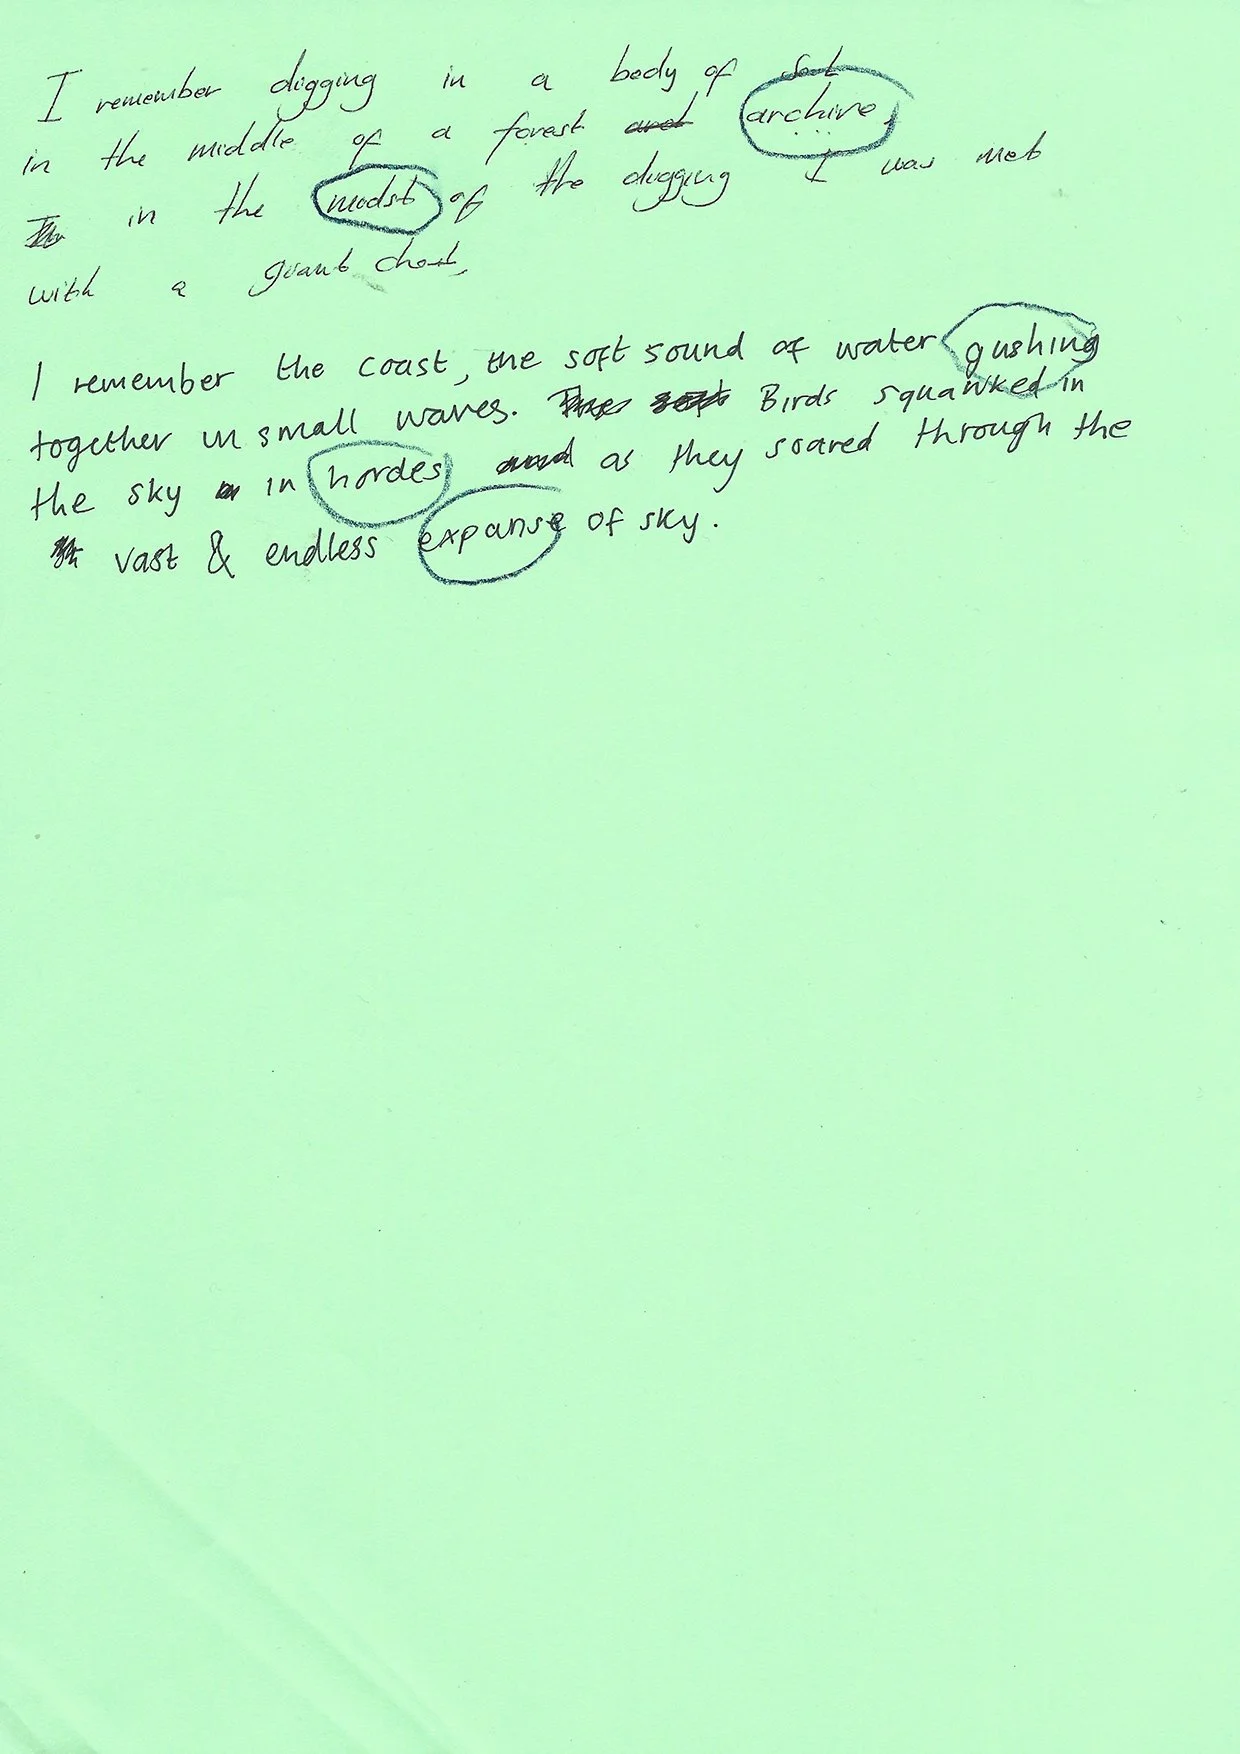 I remember digging in a body of
in the middle of a forest archive,
in the midst of the digging I was met
with a giant chest,
I remember the coast, the soft sound of water gushing
together in small waves. Birds squawked in
the sky in hordes as they soared through the
vast & endless expanse of sky.